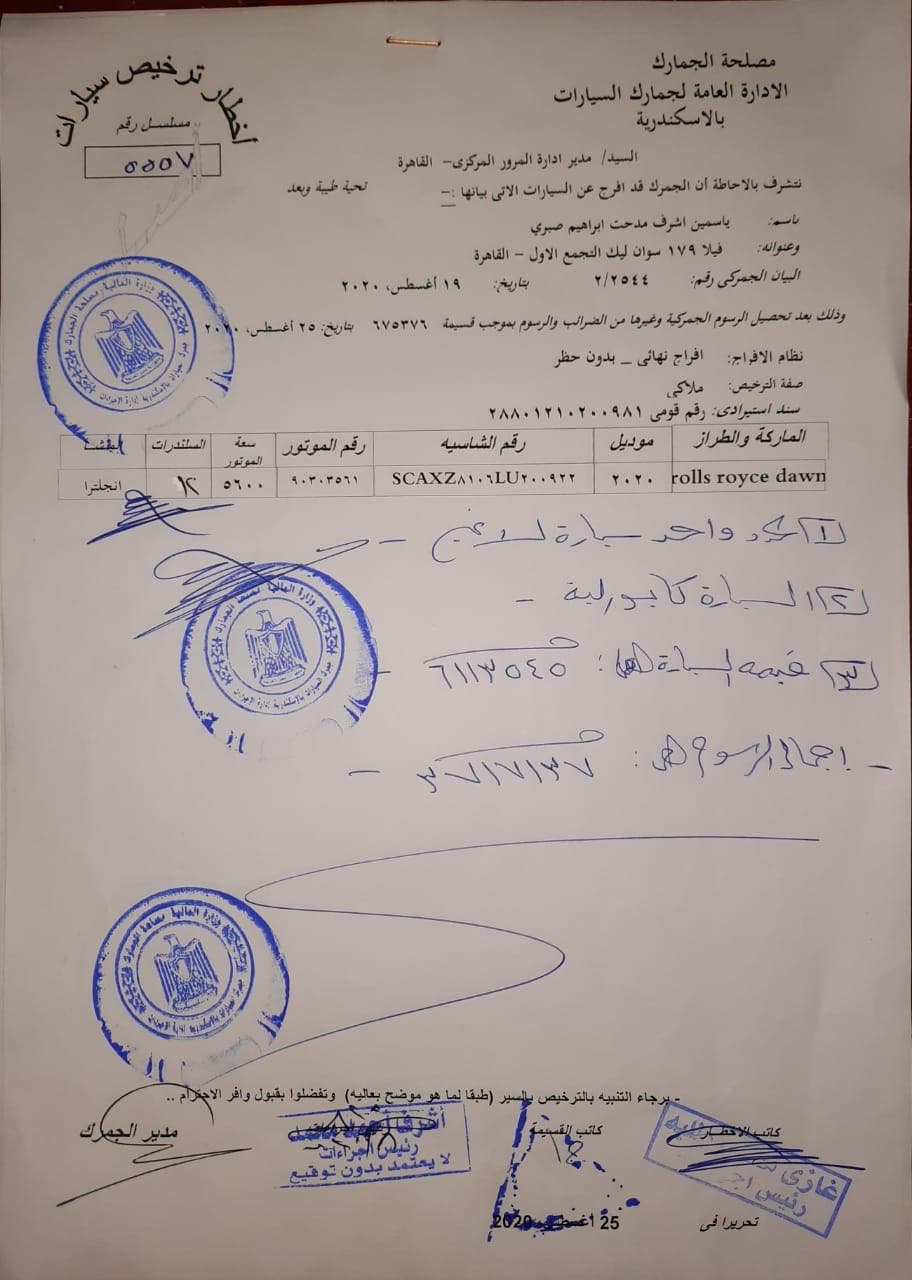 مصلحة الجمارك
الادارة العامة لجمارك السيارات
بالاسكندرية
أخطار ترخيص سيارات
مسلسل رقم
٥٥٥٧
السيد/ مدير ادارة المرور المركزى- القاهرة
تحية طيبة وبعد
نتشرف بالاحاطة أن الجمرك قد افرج عن السيارات الاتى بيانها :-
باسم: ياسمين اشرف مدحت ابراهيم صبري
وعنوانه: فيلا ١٧٩ سوان ليك التجمع الاول - القاهرة
البيان الجمركى رقم: ٢/٢٥٤٤ بتاريخ: ١٩ أغسطس، ٢٠٢٠
وذلك بعد تحصيل الرسوم الجمركية وغيرها من الضرائب والرسوم بموجب قسيمة ٦٧٥٣٧٦ بتاريخ: ٢٥ أغسطس، ٢٠٢٠
نظام الافراج: افراج نهائى _ بدون حظر
صفة الترخيص: ملاكي
سند استيرادى: رقم قومى ٢٨٨٠١٢١٠٢٠٠٩٨١
الماركة والطراز موديل رقم الشاسيه رقم الموتور سعة الموتور السلندرات المنشأ
rolls royce dawn ٢٠٢٠ SCAXZ٨١٠٦LU٢٠٠٩٢٢ ٩٠٣٠٣٥٦١ ٥٦٠٠ ١٢ انجلترا
١) واحد سيارة لا غير -
٢) السيارة كابورلية -
٣) قيمه السيارة : ٦١١٣٥٤٥ -
- اجمالى الرسوم : ٣٧١٧١٣٧ -
- برجاء التنبيه بالترخيص بالسير (طبقا لما هو موضح بعاليه) وتفضلوا بقبول وافر الاحترام ..
كاتب الاخطار كاتب القسيمة مدير الجمرك
أشرف أحمد محمد
رئيس اجراءات
لا يعتمد بدون توقيع
غازى
رئيس
تحريرا فى 25 أغسطس 2020
وزارة المالية مصلحة الجمارك